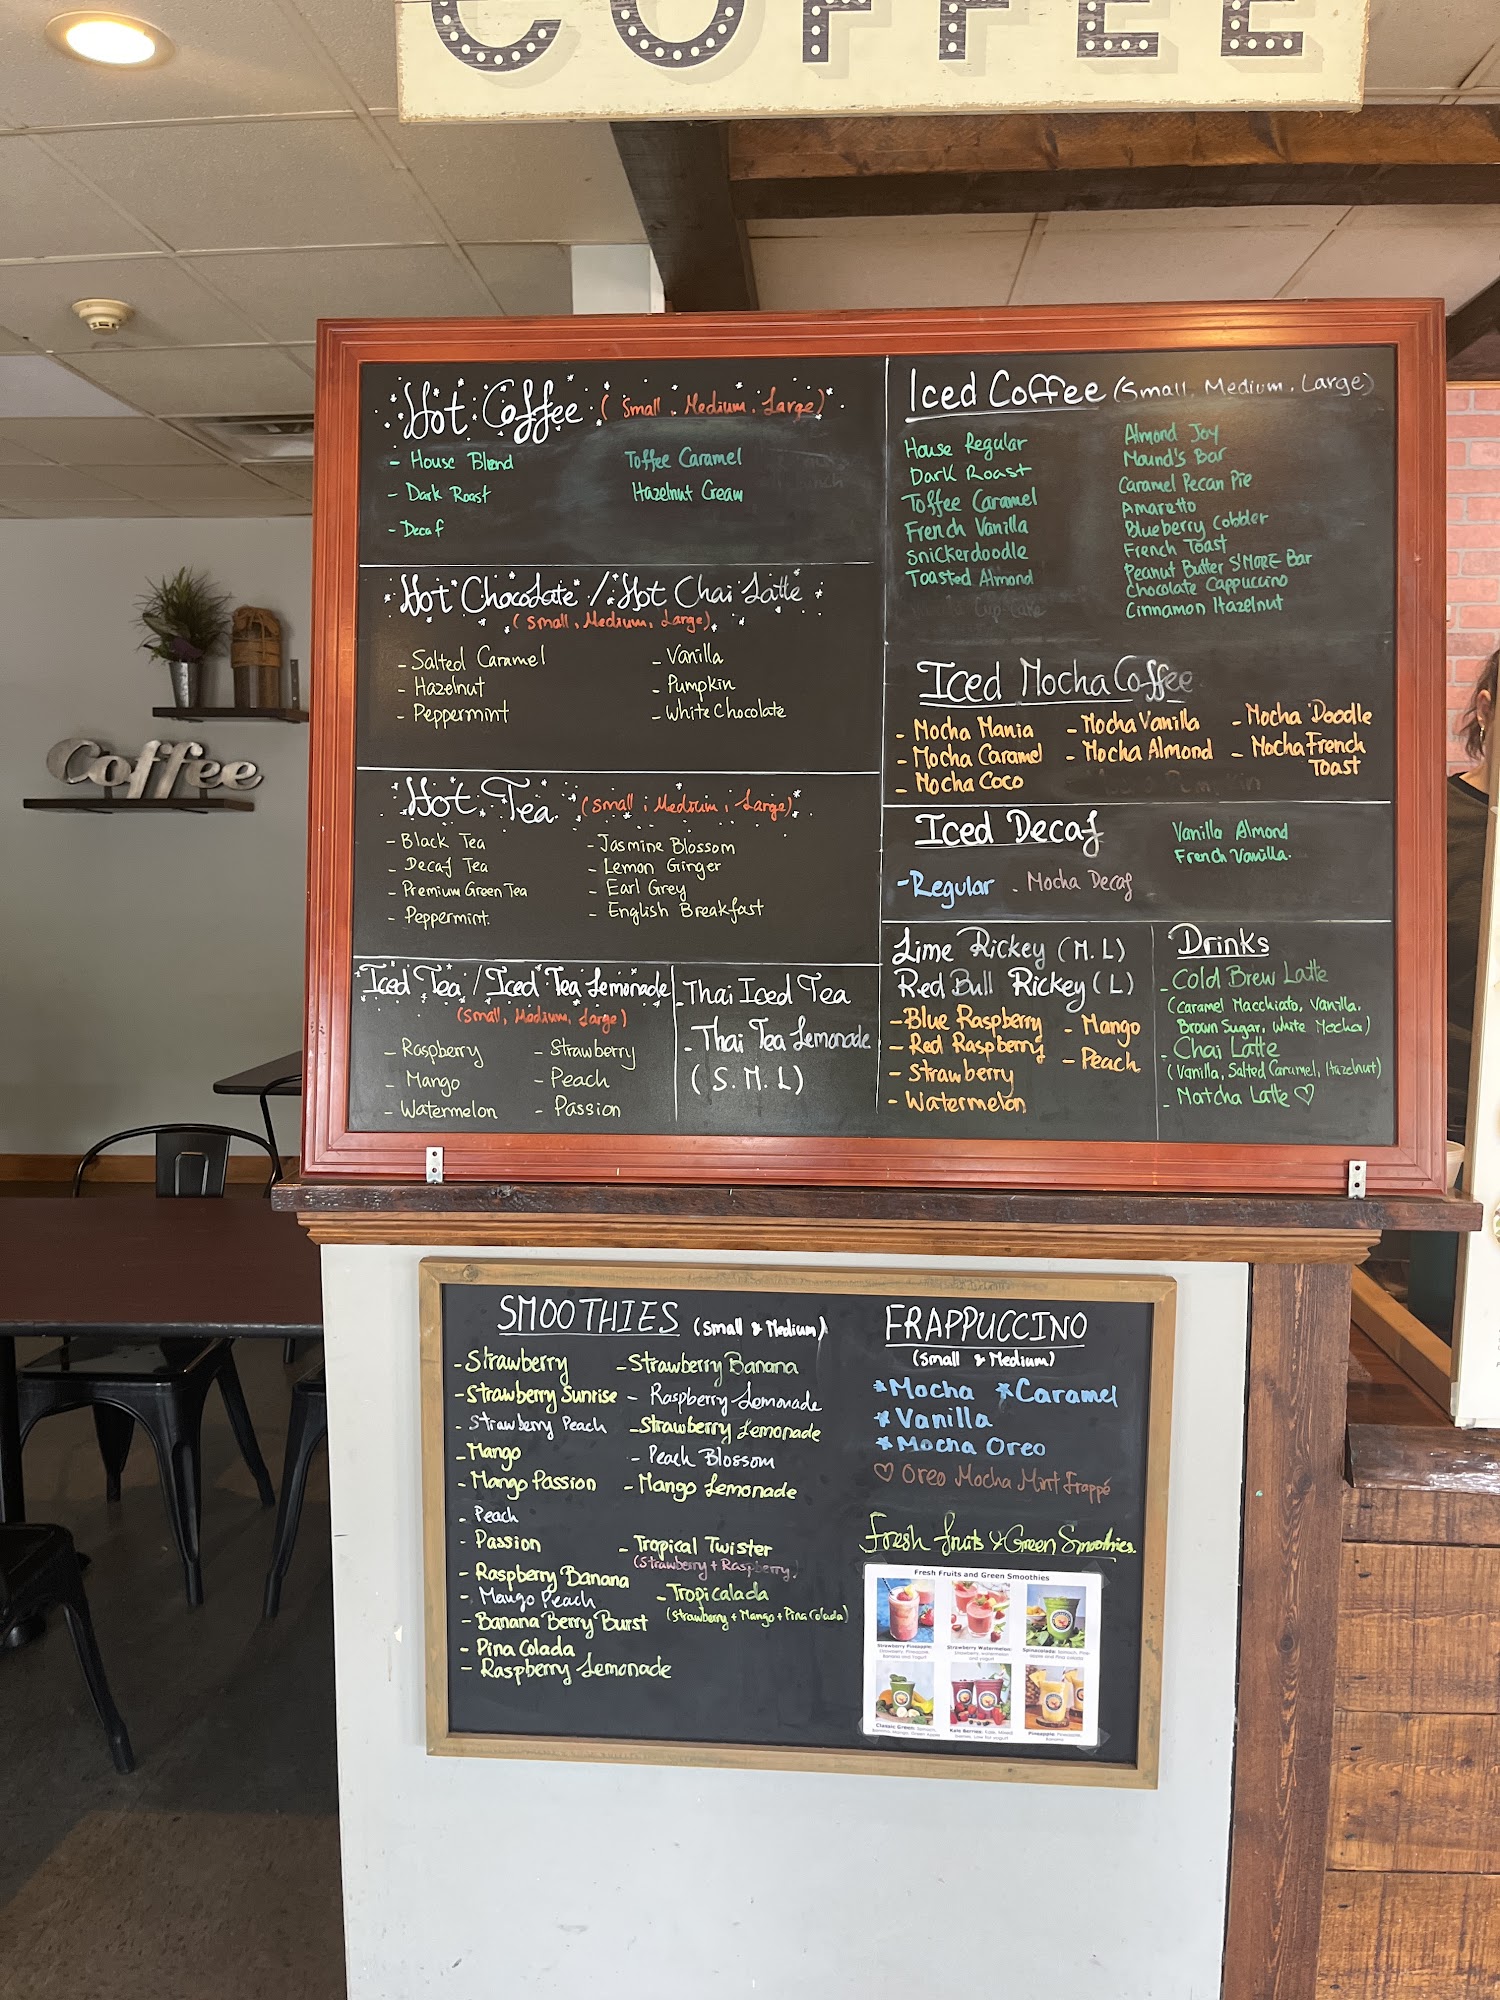 COFFEE
Coffee
Hot Coffee (Small, Medium, Large)
- House Blend
- Dark Roast
- Decaf
Toffee Caramel
Hazelnut Cream
Hot Chocolate / Hot Chai Latte
(Small, Medium, Large)
- Salted Caramel
- Hazelnut
- Peppermint
- Vanilla
- Pumpkin
- White Chocolate
Hot Tea (Small, Medium, Large)
- Black Tea
- Decaf Tea
- Premium Green Tea
- Peppermint.
- Jasmine Blossom
- Lemon Ginger
- Earl Grey
- English Breakfast
Iced Tea / Iced Tea Lemonade
(Small, Medium, Large)
- Raspberry
- Mango
- Watermelon
- Strawberry
- Peach
- Passion
- Thai Iced Tea
- Thai Tea Lemonade
(S. M. L)
Iced Coffee (Small, Medium, Large)
House Regular
Dark Roast
Toffee Caramel
French Vanilla
Snickerdoodle
Toasted Almond
Cup Cake
Almond Joy
Mound's Bar
Caramel Pecan Pie
Amaretto
Blueberry Cobbler
French Toast
Peanut Butter S'MORE Bar
Chocolate Cappuccino
Cinnamon Hazelnut
Iced Mocha Coffee
- Mocha Mania
- Mocha Caramel
- Mocha Coco
- Mocha Vanilla
- Mocha Almond
- Mocha Doodle
- Mocha French
Toast
Iced Decaf
- Regular
. Mocha Decaf
Vanilla Almond
French Vanilla.
Lime Rickey (M. L)
Red Bull Rickey (L)
- Blue Raspberry
- Red Raspberry
- Strawberry
- Watermelon
- Mango
- Peach
Drinks
- Cold Brew Latte
(Caramel Macchiato, Vanilla,
Brown Sugar, White Mocha)
- Chai Latte
(Vanilla, Salted Caramel, Hazelnut)
- Matcha Latte ♡
SMOOTHIES (Small & Medium)
- Strawberry
- Strawberry Sunrise
- Strawberry Peach
- Mango
- Mango Passion
- Peach
- Passion
- Raspberry Banana
- Mango Peach
- Banana Berry Burst
- Pina Colada
- Raspberry Lemonade
- Strawberry Banana
- Raspberry Lemonade
- Strawberry Lemonade
- Peach Blossom
- Mango Lemonade
- Tropical Twister
(Strawberry + Raspberry)
- Tropicalada
(Strawberry + Mango + Pina Colada)
FRAPPUCCINO
(Small & Medium)
* Mocha * Caramel
* Vanilla
* Mocha Oreo
♡ Oreo Mocha Mint Frappé
Fresh fruits & Green Smoothies
Fresh Fruits and Green Smoothies
Strawberry Pineapple:
Strawberry Watermelon:
Spinacolada:
Classic Green:
Kale Berries:
Pineapple: